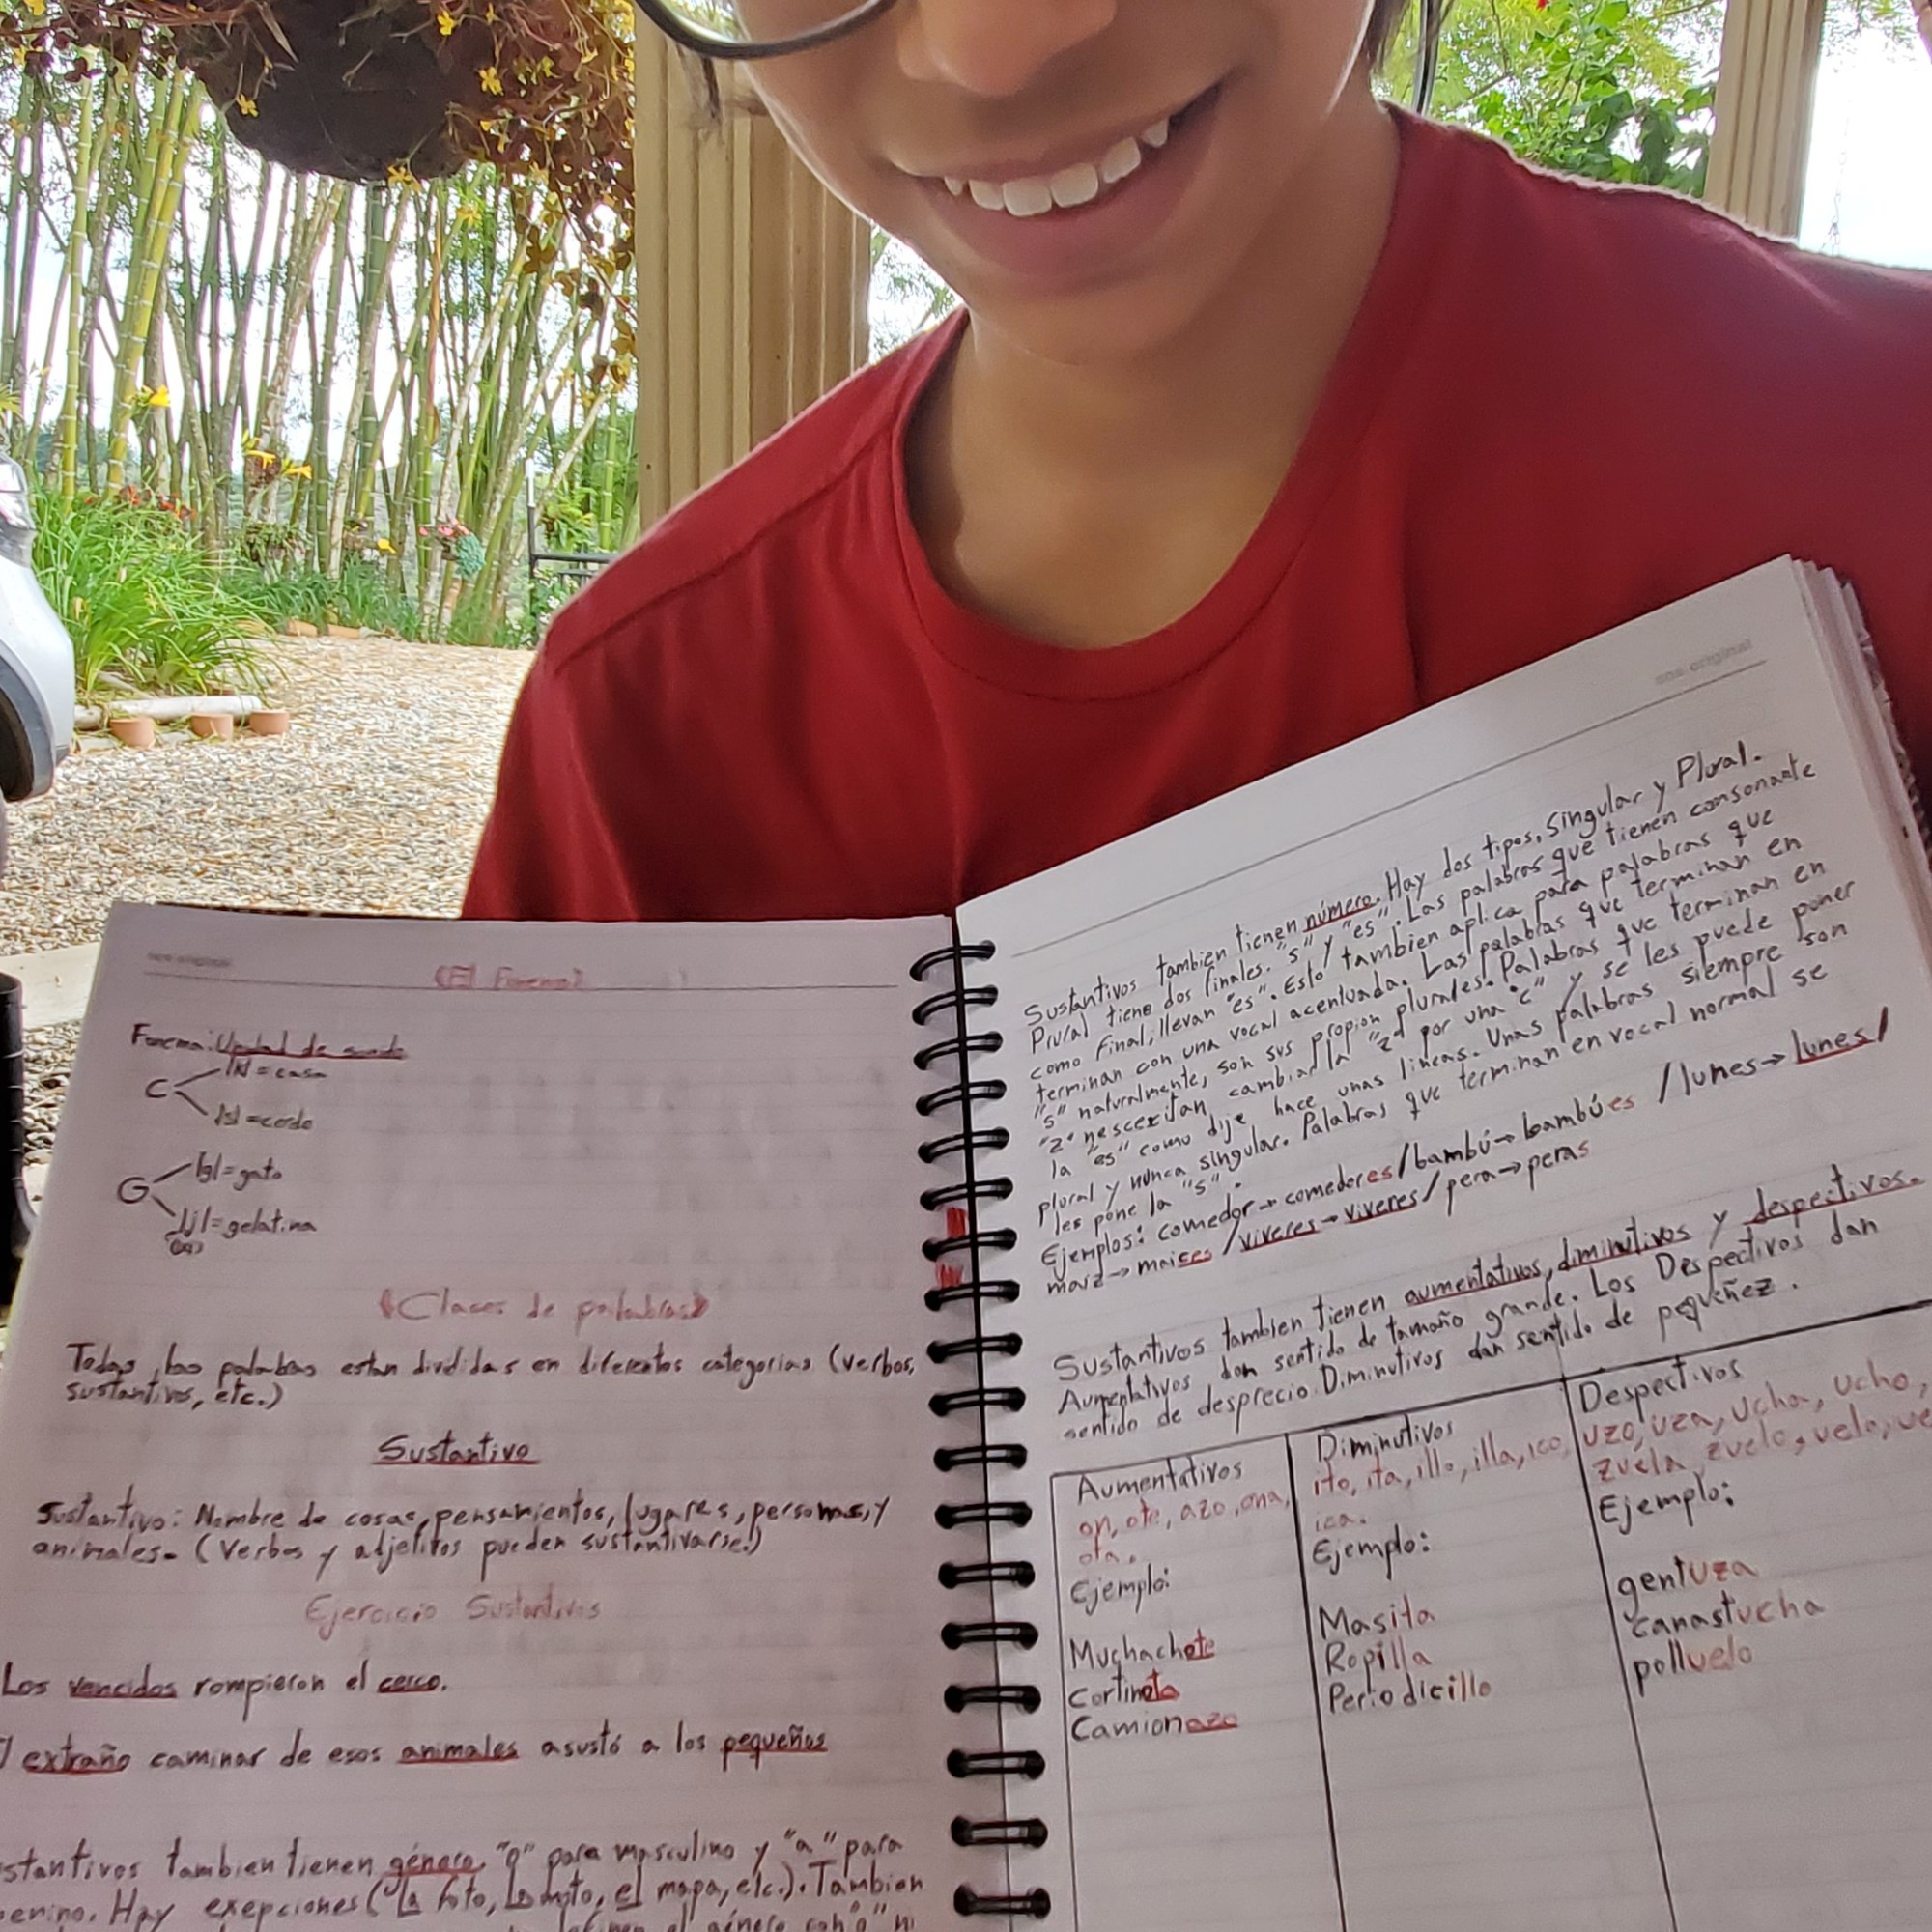 (El Fonema)
Fonema: Unidad de sonido
C /k/ = casa
/s/ = cerdo
G /g/ = gato
/j/ = gelatina
(Clases de palabras)
Todas las palabras estan divididas en diferentes categorias (verbos,
sustantivos, etc.)
Sustantivo
Sustantivo: Nombre de cosas, pensamientos, lugares, personas, y
animales. (Verbos y adjetivos pueden sustantivarse!)
Ejercicio Sustantivos
Los vencidos rompieron el cerco.
extraño caminar de esos animales asustó a los pequeños
stantivos tambien tienen género. "o" para masculino y "a" para
enino. Hay exepciones (La foto, La moto, el mapa, etc.). Tambien
el género con "o" ni
one original
Sustantivos tambien tienen número. Hay dos tipos. Singular y Plural.
Plural tiene dos finales. "s" y "es". Las palabras que tienen consonante
como final, llevan "es". Esto tambien aplica para palabras que
terminan con una vocal acentuada. Las palabras que terminan en
"s" naturalmente, son sus propios plurales. Palabras que terminan en
"z" nescesitan cambiar la "z" por una "c" y se les puede poner
la "es" como dije hace unas lineas. Unas palabras siempre son
plural y nunca singular. Palabras que terminan en vocal normal se
les pone la "s".
Ejemplos: comedor→comedores/bambú→bambúes /lunes→lunes/
maiz→maices /viveres→viveres/pera→peras
Sustantivos tambien tienen aumentativos, diminutivos y despectivos.
Aumentativos dan sentido de tamaño grande. Los Despectivos dan
sentido de desprecio. Diminutivos dan sentido de pequeñez.
Aumentativos
on, ote, azo, ona,
ota.
Ejemplo:
Muchachote
Cortinota
Camionazo
Diminutivos
ito, ita, illo, illa, ico,
ica.
Ejemplo:
Masita
Ropilla
Periodicillo
Despectivos
uzo, uza, ucha, ucho,
zuela, zuelo, uelo,
Ejemplo:
gentuza
canastucha
polluelo